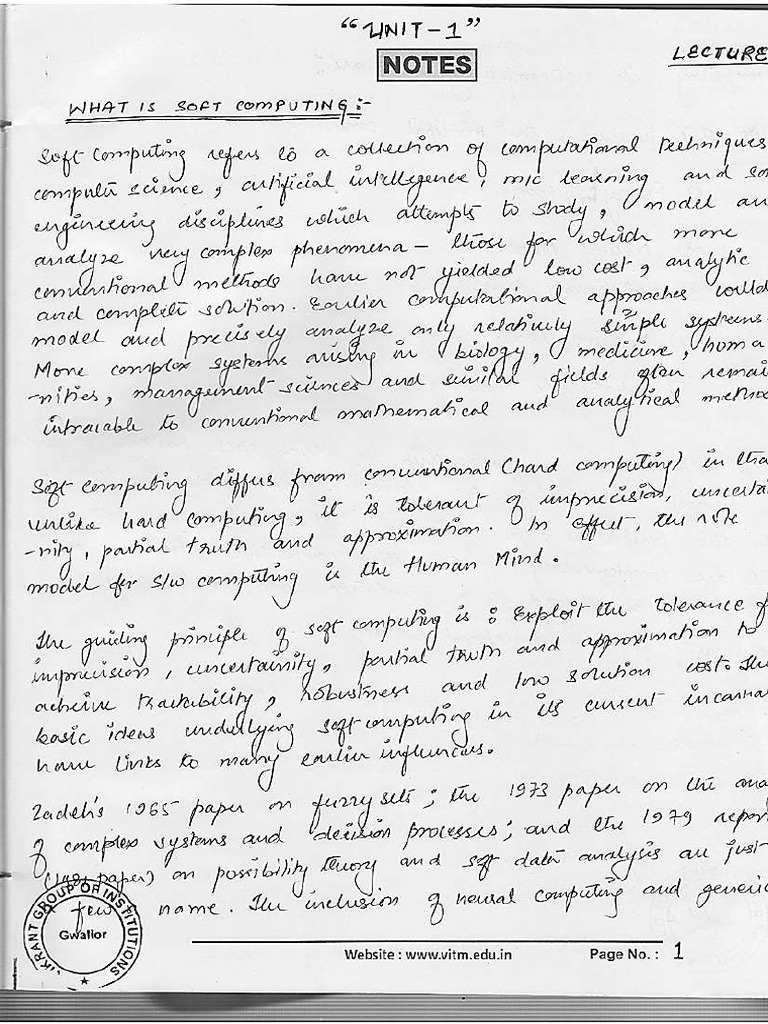 "UNIT-1"
NOTES
LECTURE
WHAT IS SOFT COMPUTING:-
Soft Computing refers to a collection of computational techniques
computer science, artificial intelligence, m/c learning and so
engineering disciplines which attempts to study, model an
analyze very complex phenomena – those for which more
conventional methods have not yielded low cost, analytic
and complete solution. Earlier computational approaches could
model and precisely analyze only relatively simple systems.
More complex systems arising in biology, medicine, huma
-nities, management sciences and similar fields often remai
intracable to conventional mathematical and analytical method
Soft computing differs from conventional (hard computing) in tha
unlike hard computing, it is tolerant of imprecision, uncertai
-nity, partial truth and approximation. In effect, the role
model for s/w computing is the Human Mind.
The guiding principle of soft computing is : Exploit the tolerance of
imprecision, uncertainity, partial truth and approximation to
achieve tractability, robustness and low solution cost. The
basic ideas underlying soft computing in its current incarna
have links to many earlier influences.
Zadeh's 1965 paper on fuzzy sets; the 1973 paper on the ana
of complex systems and decision processes; and the 1979 report
(1981 paper) on possibility theory and soft data analysis are just
few name. The inclusion of neural computing and genetic
IKRANT GROUP OF INSTITUTIONS
Gwalior
Website : www.vitm.edu.in Page No. : 1